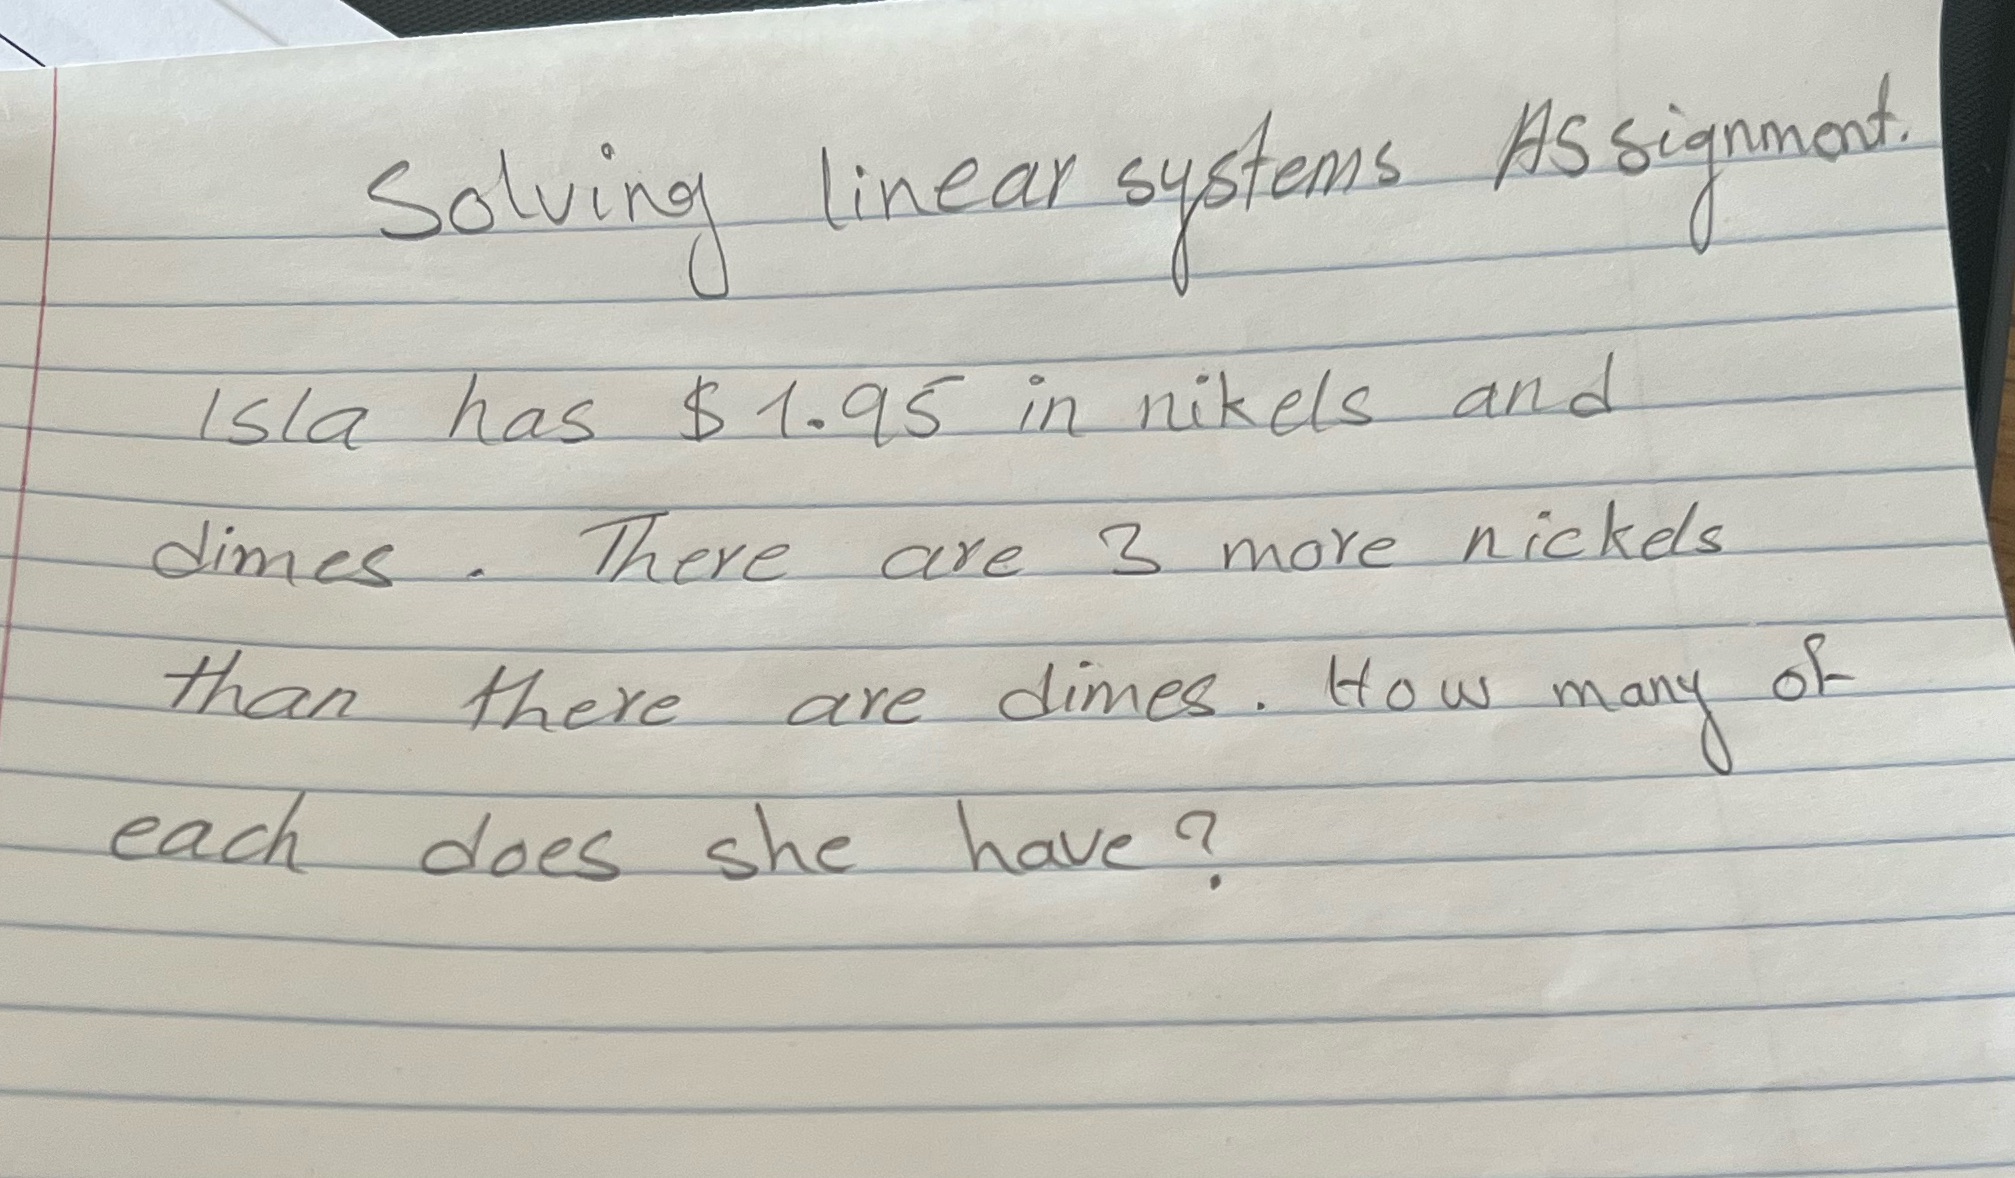 Solving linear systems Assignment.
Isla has $1.95 in nikels and
dimes. There are 3 more nickels
than there are dimes. How many of
each does she have?